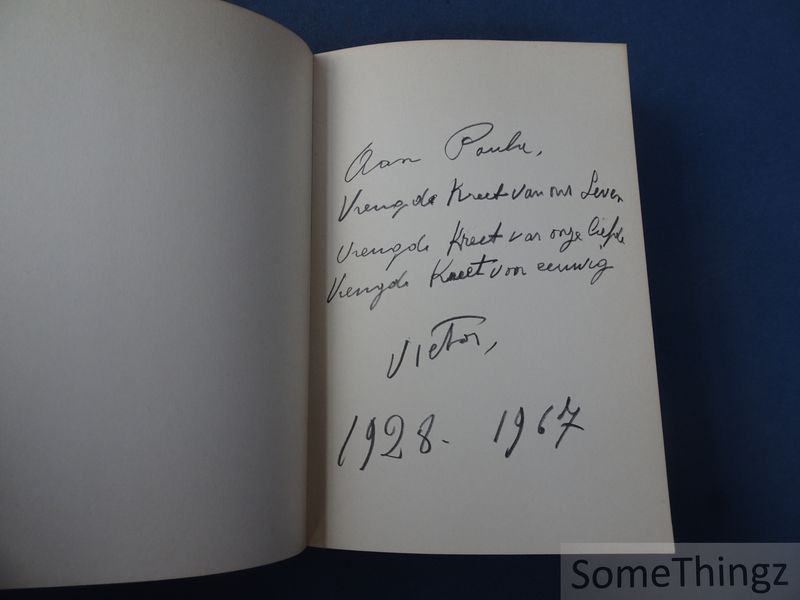 Aan Paula,
Vreugde Kreet van ons Leven
Vreugde Kreet van onze liefde
Vreugde Kreet voor eeuwig
Victor,
1928. 1967
SomeThingz